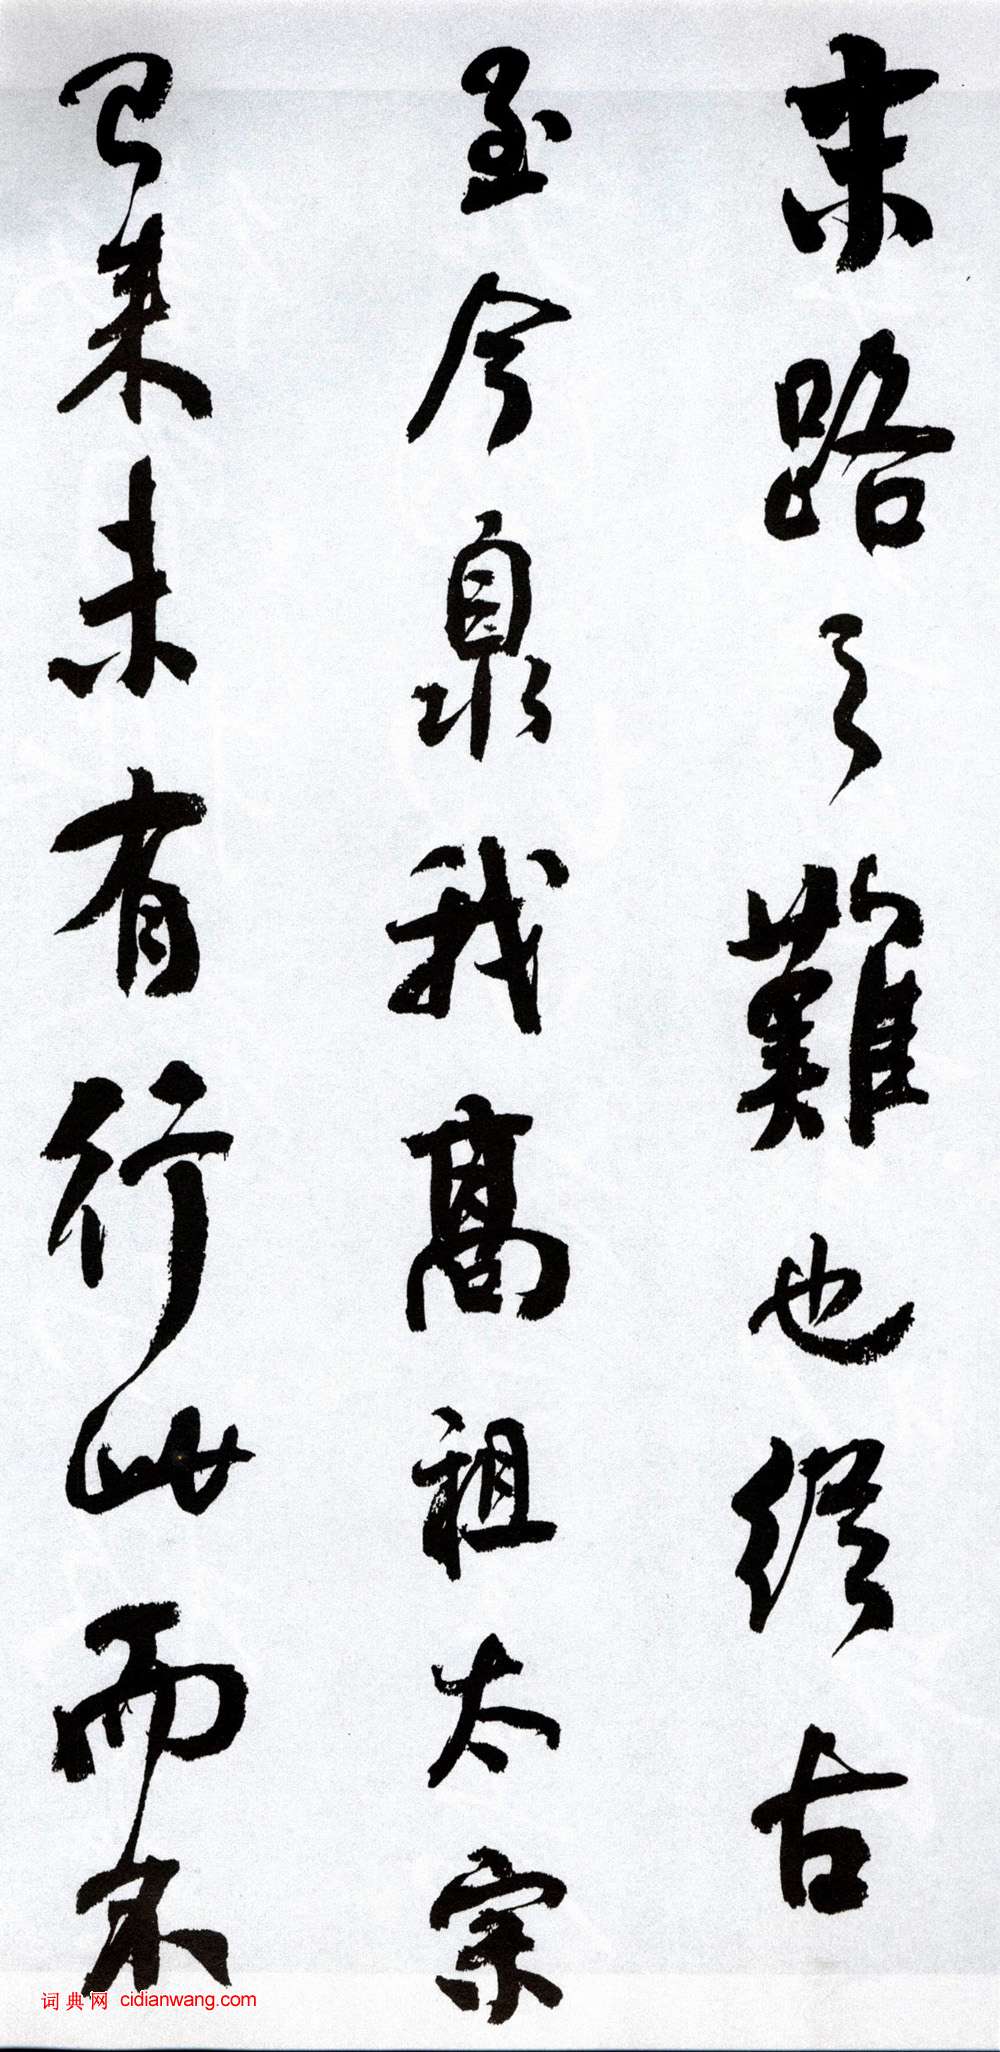 末路之難也縱古
至今泉我高祖太宗
已來未有行此而不
词典网 cidianwang.com